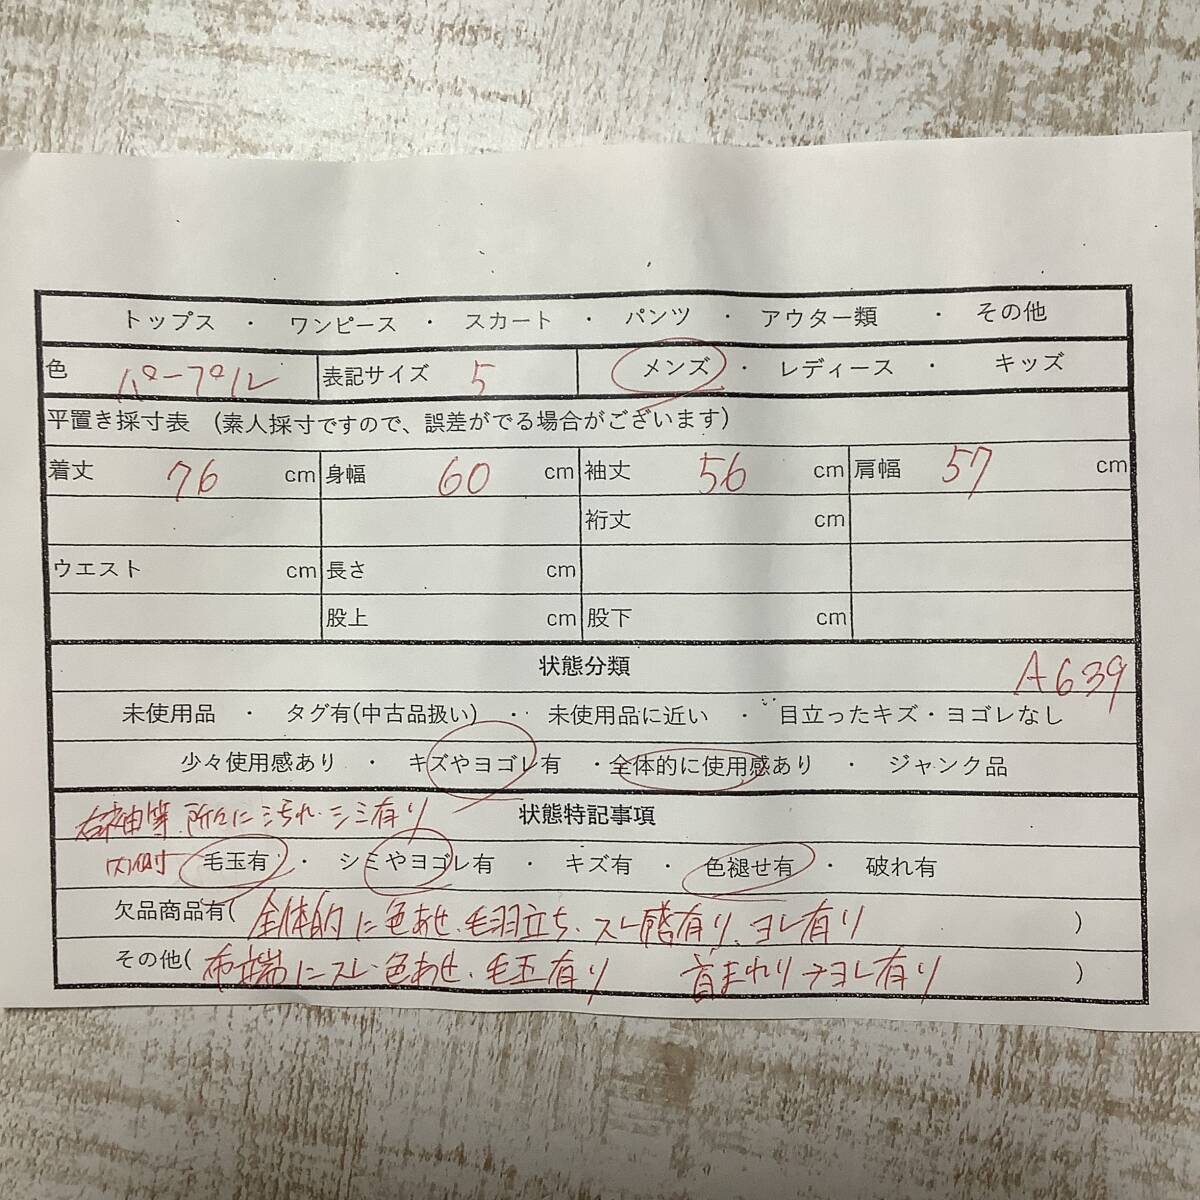 トップス ・ ワンピース ・ スカート ・ パンツ ・ アウター類 ・ その他
色 パープル 表記サイズ 5 メンズ ・ レディース ・ キッズ
平置き採寸表 (素人採寸ですので、誤差がでる場合がございます)
着丈 76 cm 身幅 60 cm 袖丈 56 cm 肩幅 57 cm
裄丈 cm
ウエスト cm 長さ cm
股上 cm 股下 cm
状態分類 A639
未使用品 ・ タグ有(中古品扱い) ・ 未使用品に近い ・ 目立ったキズ・ヨゴレなし
少々使用感あり ・ キズやヨゴレ有 ・全体的に使用感あり ・ ジャンク品
右袖等 所々に汚れ・シミ有り 状態特記事項
内側 毛玉有 ・ シミやヨゴレ有 ・ キズ有 ・ 色褪せ有 ・ 破れ有
欠品商品有( 全体的に色あせ、毛羽立ち、スレ感有り、ヨレ有り )
その他( 布端にスレ・色あせ、毛玉有り 首まわりヨレ有り )